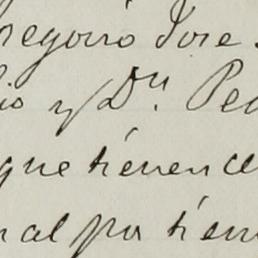 regorio Jose
lio y Dn. Ped
que tienen ce
nal por tiem